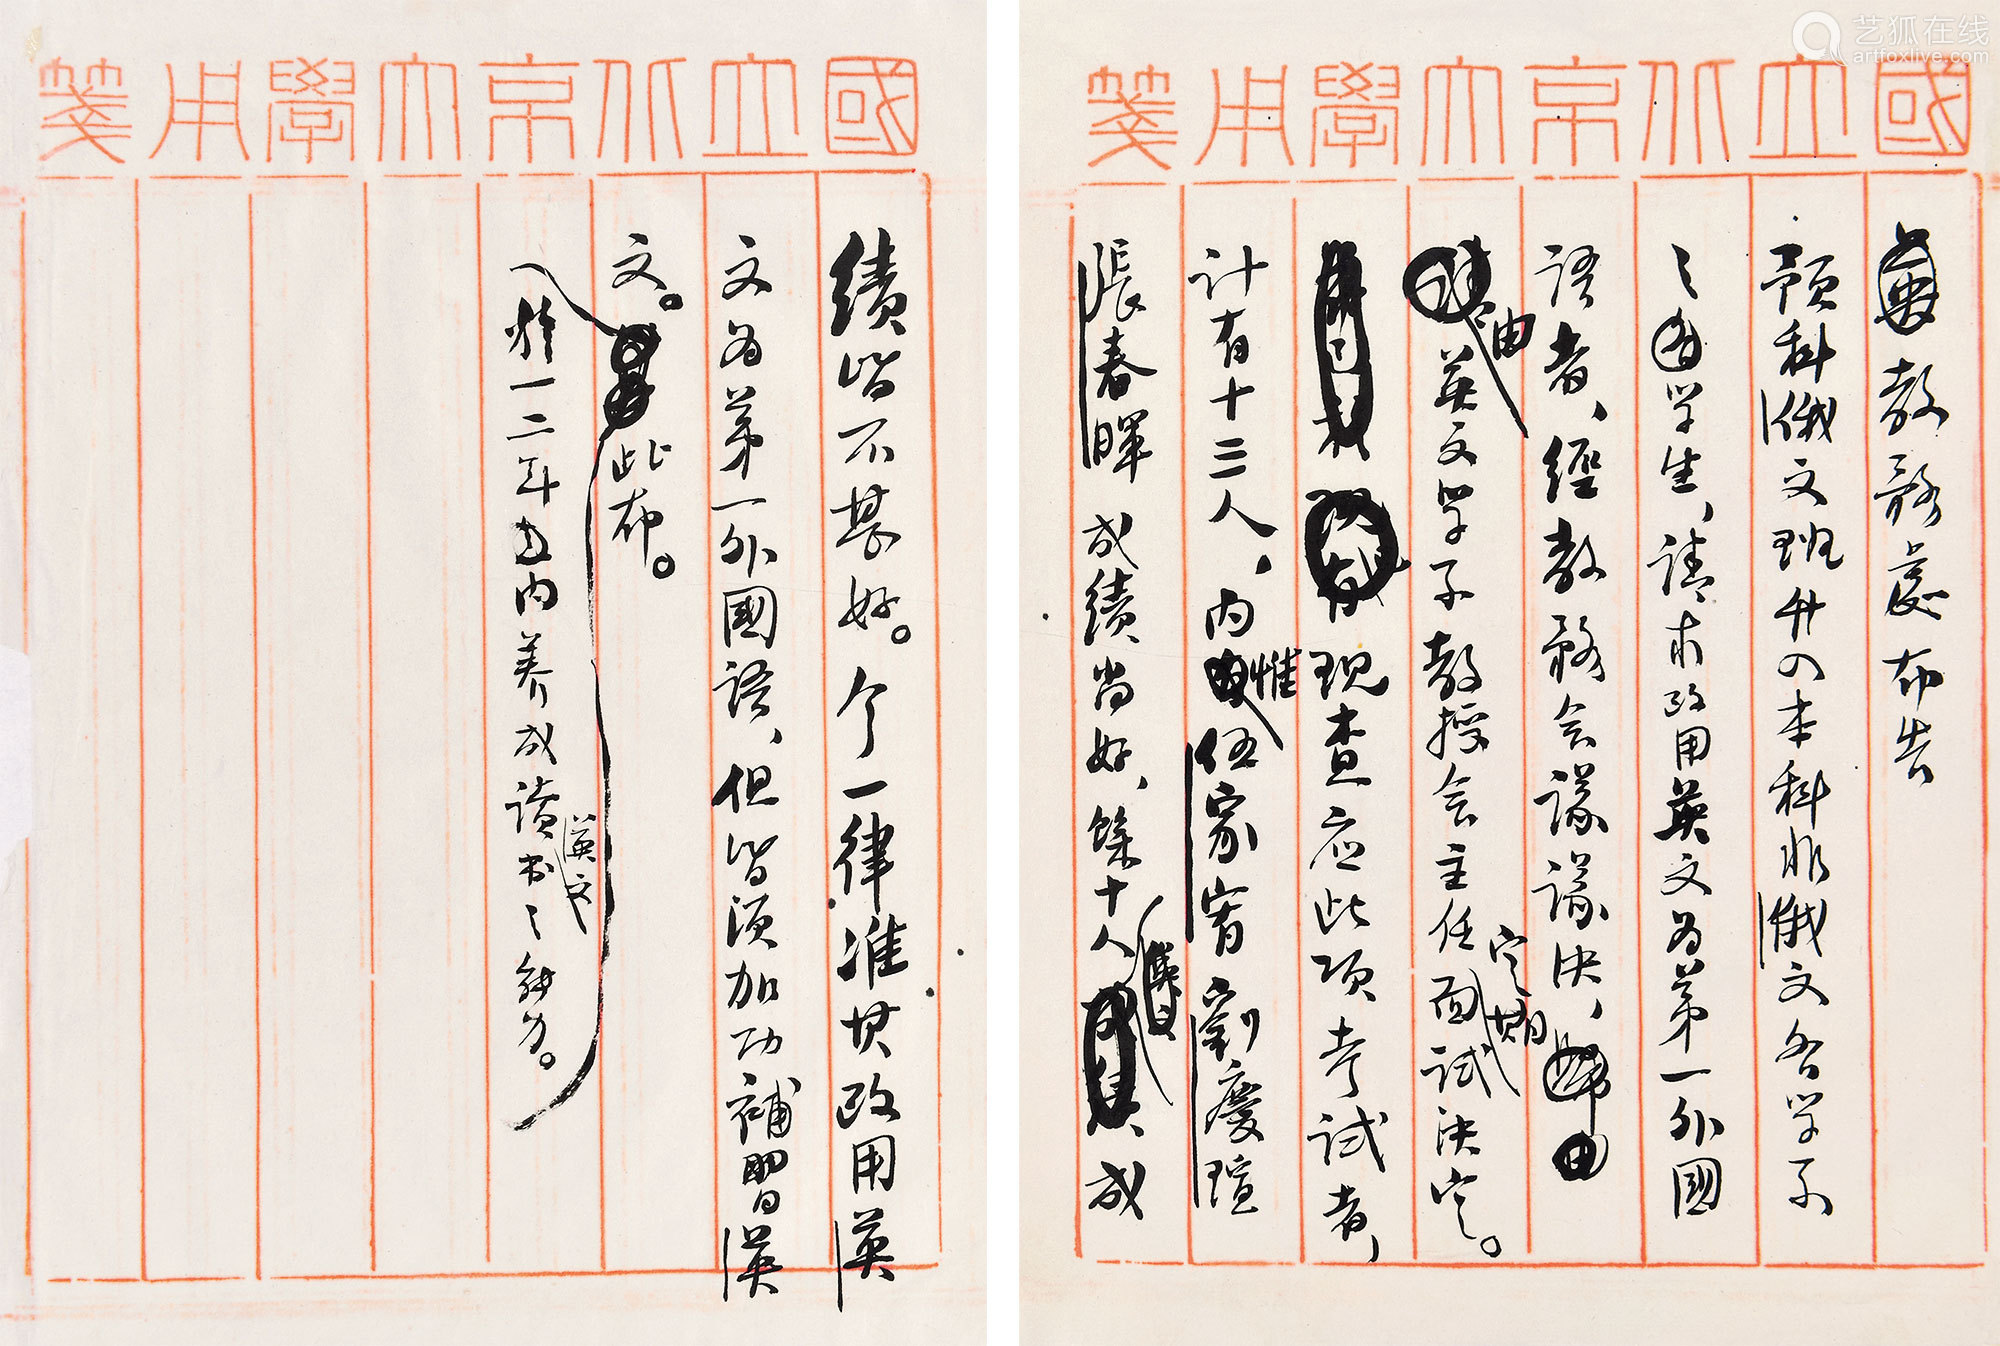 艺狐在线
artfoxlive.com
國立北京大學用箋
教務處布告
預科俄文班升入本科非俄文各學系
之學生,請求改用英文為第一外國
語者,經教務会議議決,
由英文學系教授会主任定期面試決定。
現查应此項考試者,
計有十三人。內惟伍家宥劉慶瑄
張春暉成績尚好,餘十人
成
國立北京大學用箋
績皆不甚好。今一律准其改用英
文為第一外國語,但皆須加功補習英
文。
此布。
於一二年內養成讀英文書之能力。